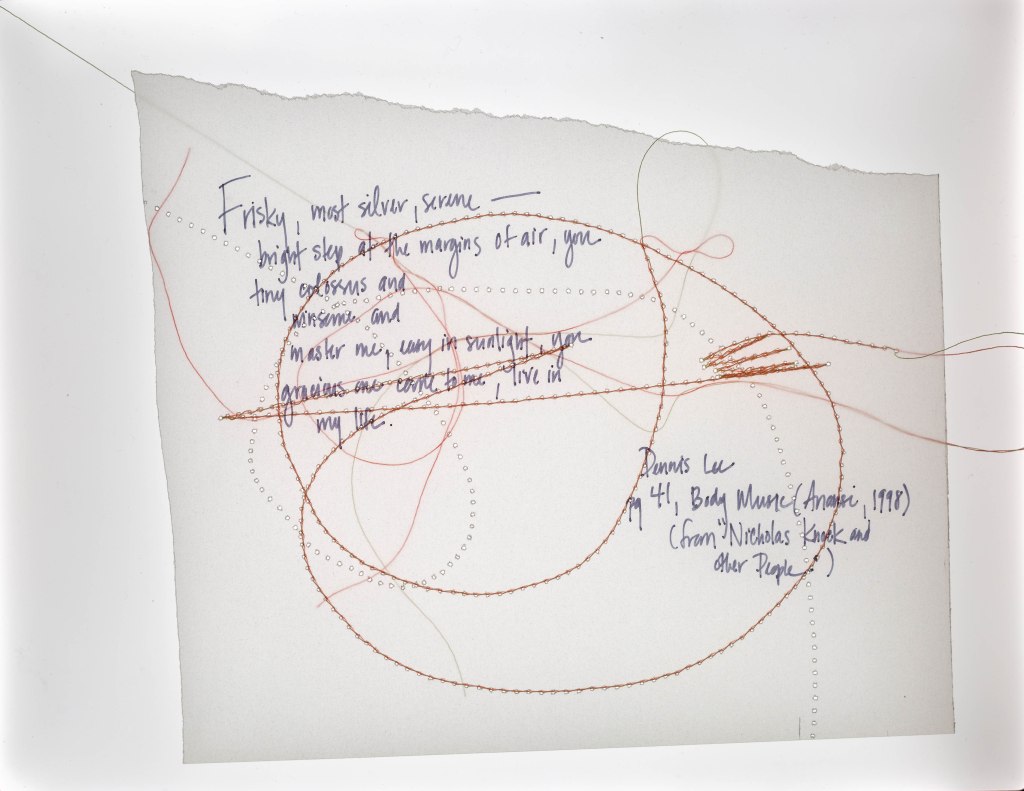 Frisky, most silver, serene —
bright step at the margins of air, you
tiny colossus and
winsome and
master me, easy in sunlight, you
gracious one come to me, live in
my life.
Dennis Lee
pg 41, Body Music (Anansi, 1998)
(from "Nicholas Knock and
other People")